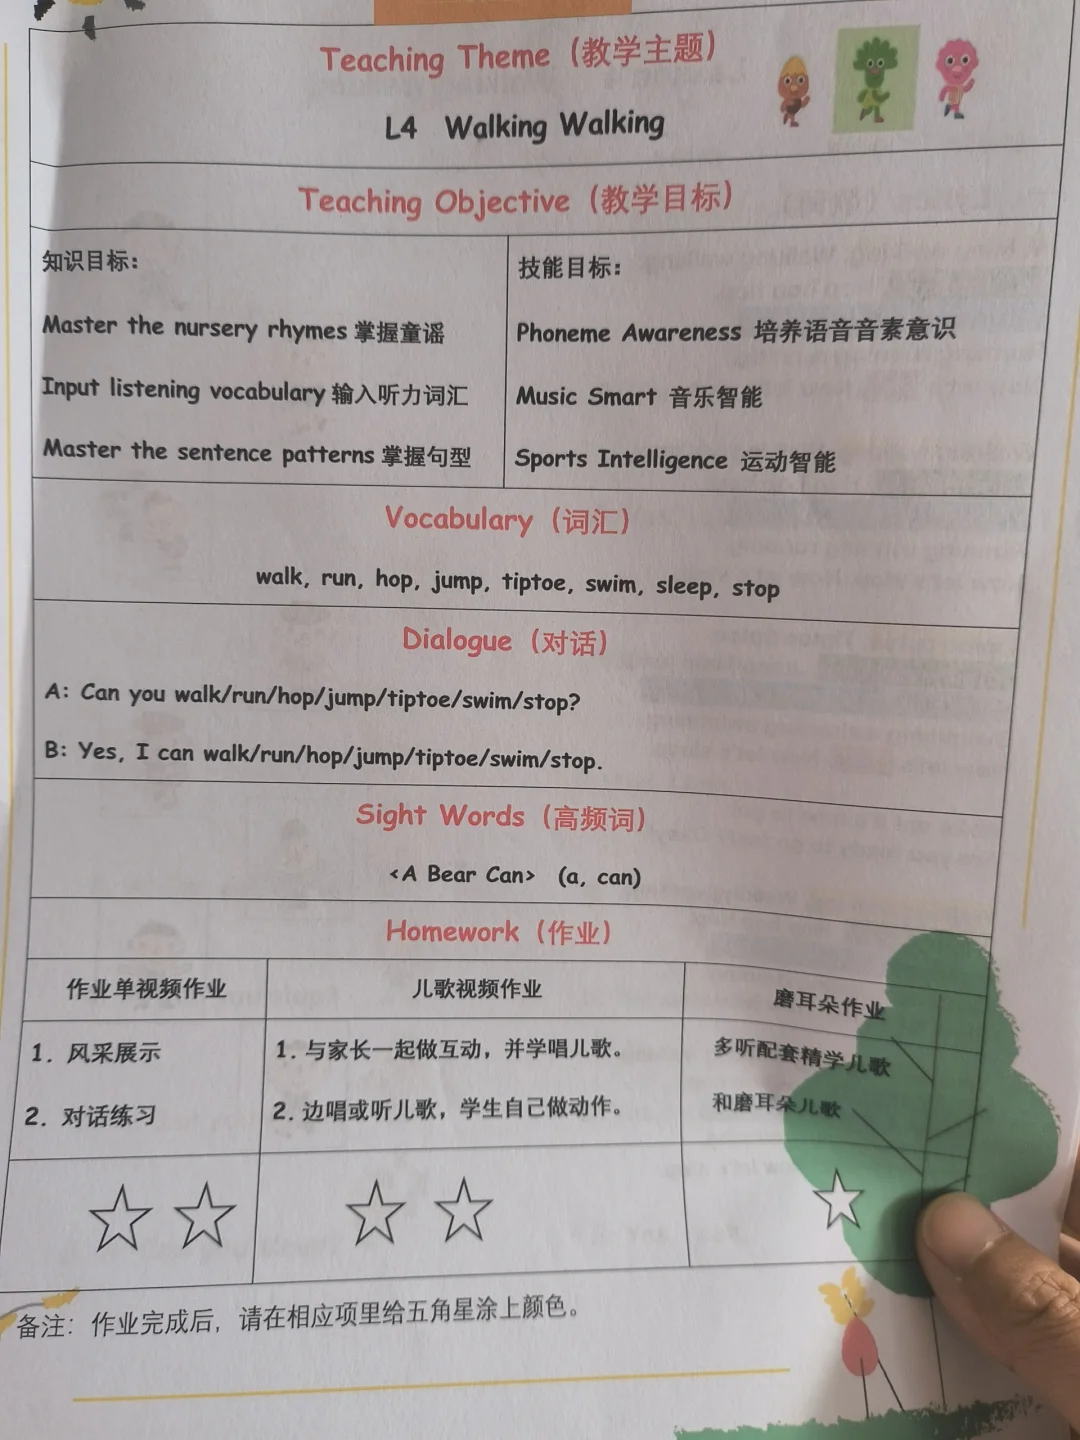 Teaching Theme（教学主题）
L4 Walking Walking
Teaching Objective（教学目标）
知识目标：
Master the nursery rhymes 掌握童谣
Input listening vocabulary 输入听力词汇
Master the sentence patterns 掌握句型
技能目标：
Phoneme Awareness 培养语音音素意识
Music Smart 音乐智能
Sports Intelligence 运动智能
Vocabulary（词汇）
walk, run, hop, jump, tiptoe, swim, sleep, stop
Dialogue（对话）
A: Can you walk/run/hop/jump/tiptoe/swim/stop?
B: Yes, I can walk/run/hop/jump/tiptoe/swim/stop.
Sight Words（高频词）
<A Bear Can> (a, can)
Homework（作业）
作业单视频作业
儿歌视频作业
磨耳朵作业
1. 风采展示
2. 对话练习
1. 与家长一起做互动，并学唱儿歌。
2. 边唱或听儿歌，学生自己做动作。
多听配套精学儿歌
和磨耳朵儿歌
备注：作业完成后，请在相应项里给五角星涂上颜色。